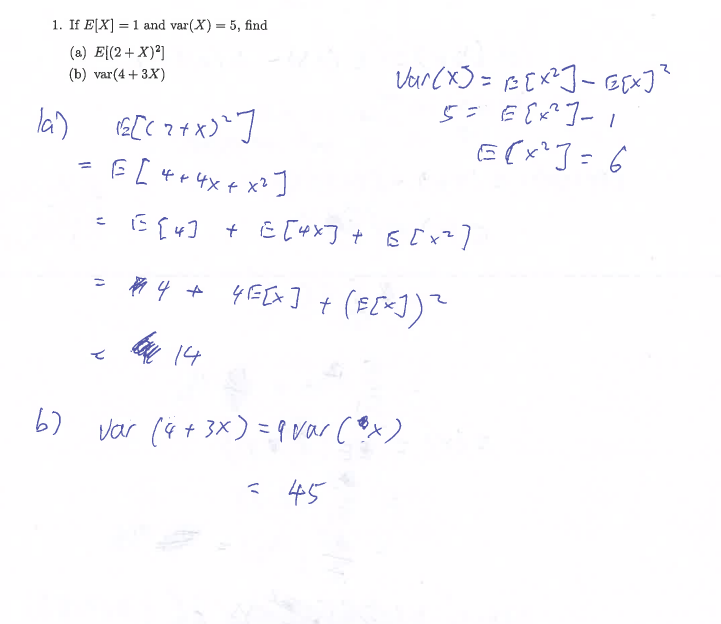 1. If E[X] = 1 and var(X) = 5, find
(a) E[(2 + X)²]
(b) var(4 + 3X)
Var(X) = E[X²] - E[X]²
5 = E[X²] - 1
E[X²] = 6
1a) E[(2+X)²]
= E[4 + 4X + X²]
= E[4] + E[4X] + E[X²]
= 4 + 4E[X] + (E[X])²
= 14
b) Var (4 + 3X) = 9 Var (X)
= 45